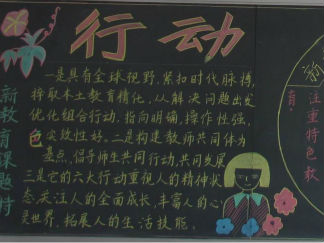 行动
一是具有全球视野,紧扣时代脉搏,
择取本土教育精化,从解决问题出发
优化组合行动,指向明确,操作性强,
实效性好。二是构建教师共同体为
基点,倡导师生共同行动,共同发展
三是它的六大行动重视人的精神状
态,关注人的全面成长,丰富人的心
灵世界,拓展人的生活技能。
新教育课题特色
新
注重特色教
育,